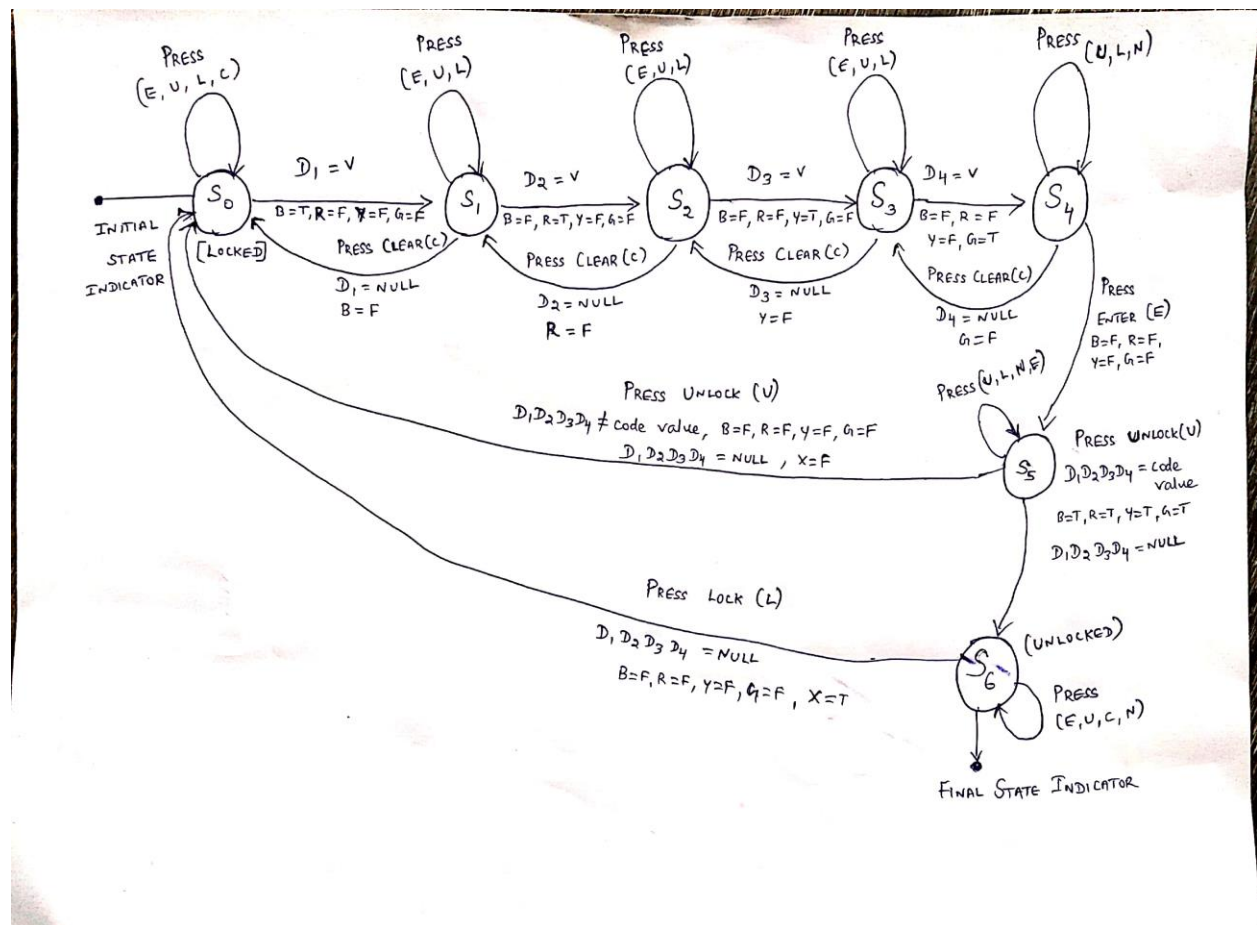 PRESS
(E, U, L, C)
PRESS
(E, U, L)
PRESS
(E, U, L)
PRESS
(E, U, L)
PRESS (U, L, N)
D1 = V
D2 = V
D3 = V
D4 = V
S0
S1
S2
S3
S4
B=T, R=F, Y=F, G=F
B=F, R=T, Y=F, G=F
B=F, R=F, Y=T, G=F
B=F, R=F
Y=F, G=T
INITIAL
STATE
INDICATOR
[LOCKED]
PRESS CLEAR(C)
D1 = NULL
B = F
PRESS CLEAR(C)
D2 = NULL
R = F
PRESS CLEAR(C)
D3 = NULL
Y=F
PRESS CLEAR(C)
D4 = NULL
G=F
PRESS
ENTER (E)
B=F, R=F,
Y=F, G=F
PRESS(U, L, N, E)
S5
PRESS UNLOCK (U)
D1D2D3D4 ≠ code value, B=F, R=F, Y=F, G=F
D1D2D3D4 = NULL, X=F
PRESS UNLOCK(U)
D1D2D3D4 = code
value
B=T, R=T, Y=T, G=T
D1D2D3D4 = NULL
PRESS LOCK (L)
D1D2D3D4 = NULL
B=F, R=F, Y=F, G=F, X=T
(UNLOCKED)
S6
PRESS
(E, U, C, N)
FINAL STATE INDICATOR